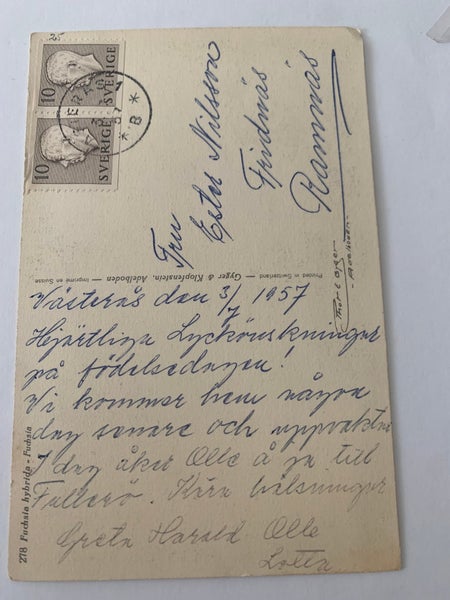 25
10 SVERIGE
10 SVERIGE
* B *
Fru
Ester Nilsson
Fridnäs
Ramnäs
Printed in Switzerland — Gyger & Klopfenstein, Adelboden — Imprimé en Suisse
Västerås den 3/7 1957
Hjärtliga Lyckönskningar
på födelsedagen!
Vi kommer hem någon
dag senare och uppvaktar
I dag åker Olle å ja till
Fullerö. Kära hälsningar
Greta Harald Olle
Lotta
278 Fuchsia hybrida - Fuchsia